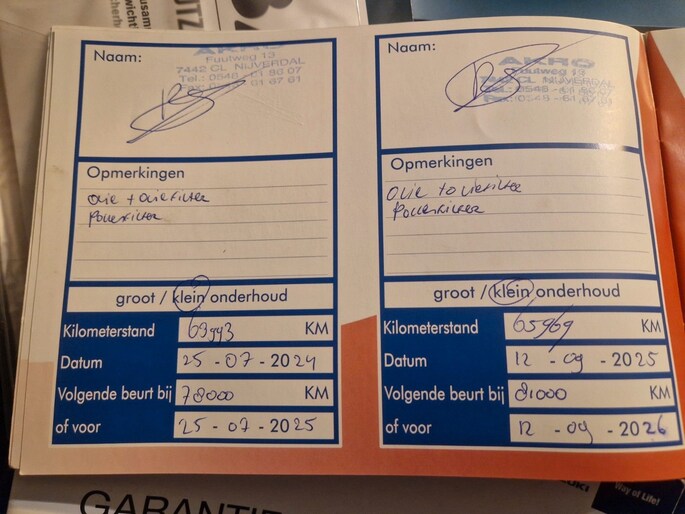 Naam:
AKRO
Fuutweg 13
7442 CL NIJVERDAL
Tel.: 0548 - 61 86 07
Opmerkingen
olie + oliefilter
pollenfilter
groot / klein onderhoud
Kilometerstand 69993 KM
Datum 25 - 07 - 2024
Volgende beurt bij 78000 KM
of voor 25 - 07 - 2025
Naam:
AKRO
Fuutweg 13
7442 CL NIJVERDAL
Opmerkingen
olie + oliefilter
pollenfilter
groot / klein onderhoud
Kilometerstand 65969 KM
Datum 12 - 09 - 2025
Volgende beurt bij 81000 KM
of voor 12 - 09 - 2026
GARANTIE
Way of Life!